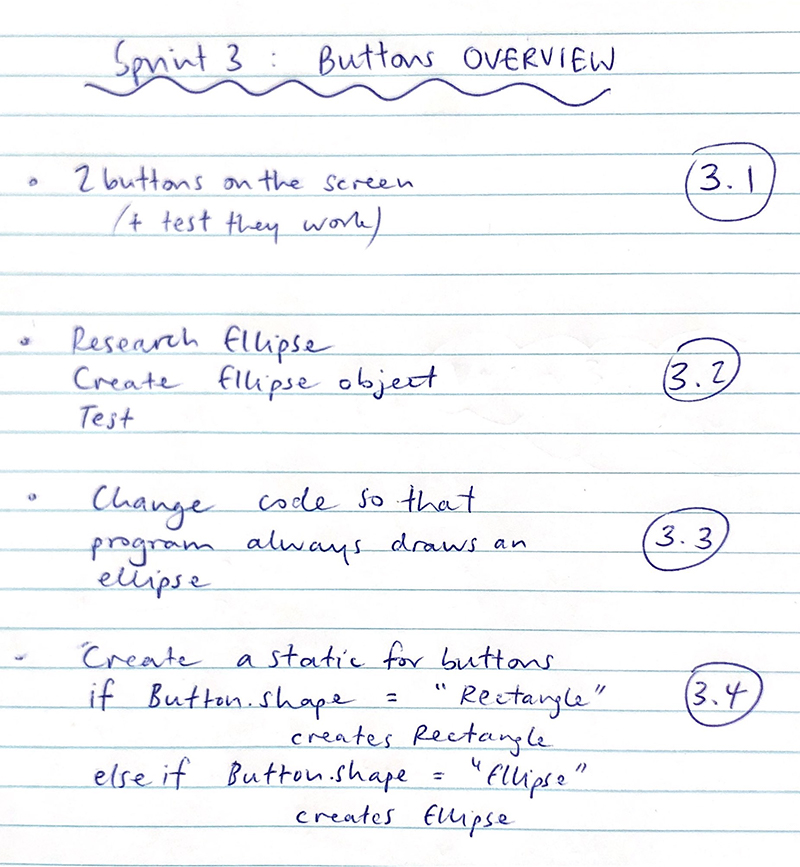 Sprint 3 : Buttons OVERVIEW
• 2 buttons on the screen
(+ test they work)
3.1
• Research Ellipse
Create Ellipse object
Test
3.2
• Change code so that
program always draws an
ellipse
3.3
- Create a static for buttons
if Button.shape = "Rectangle"
creates Rectangle
else if Button.shape = "Ellipse"
creates Ellipse
3.4